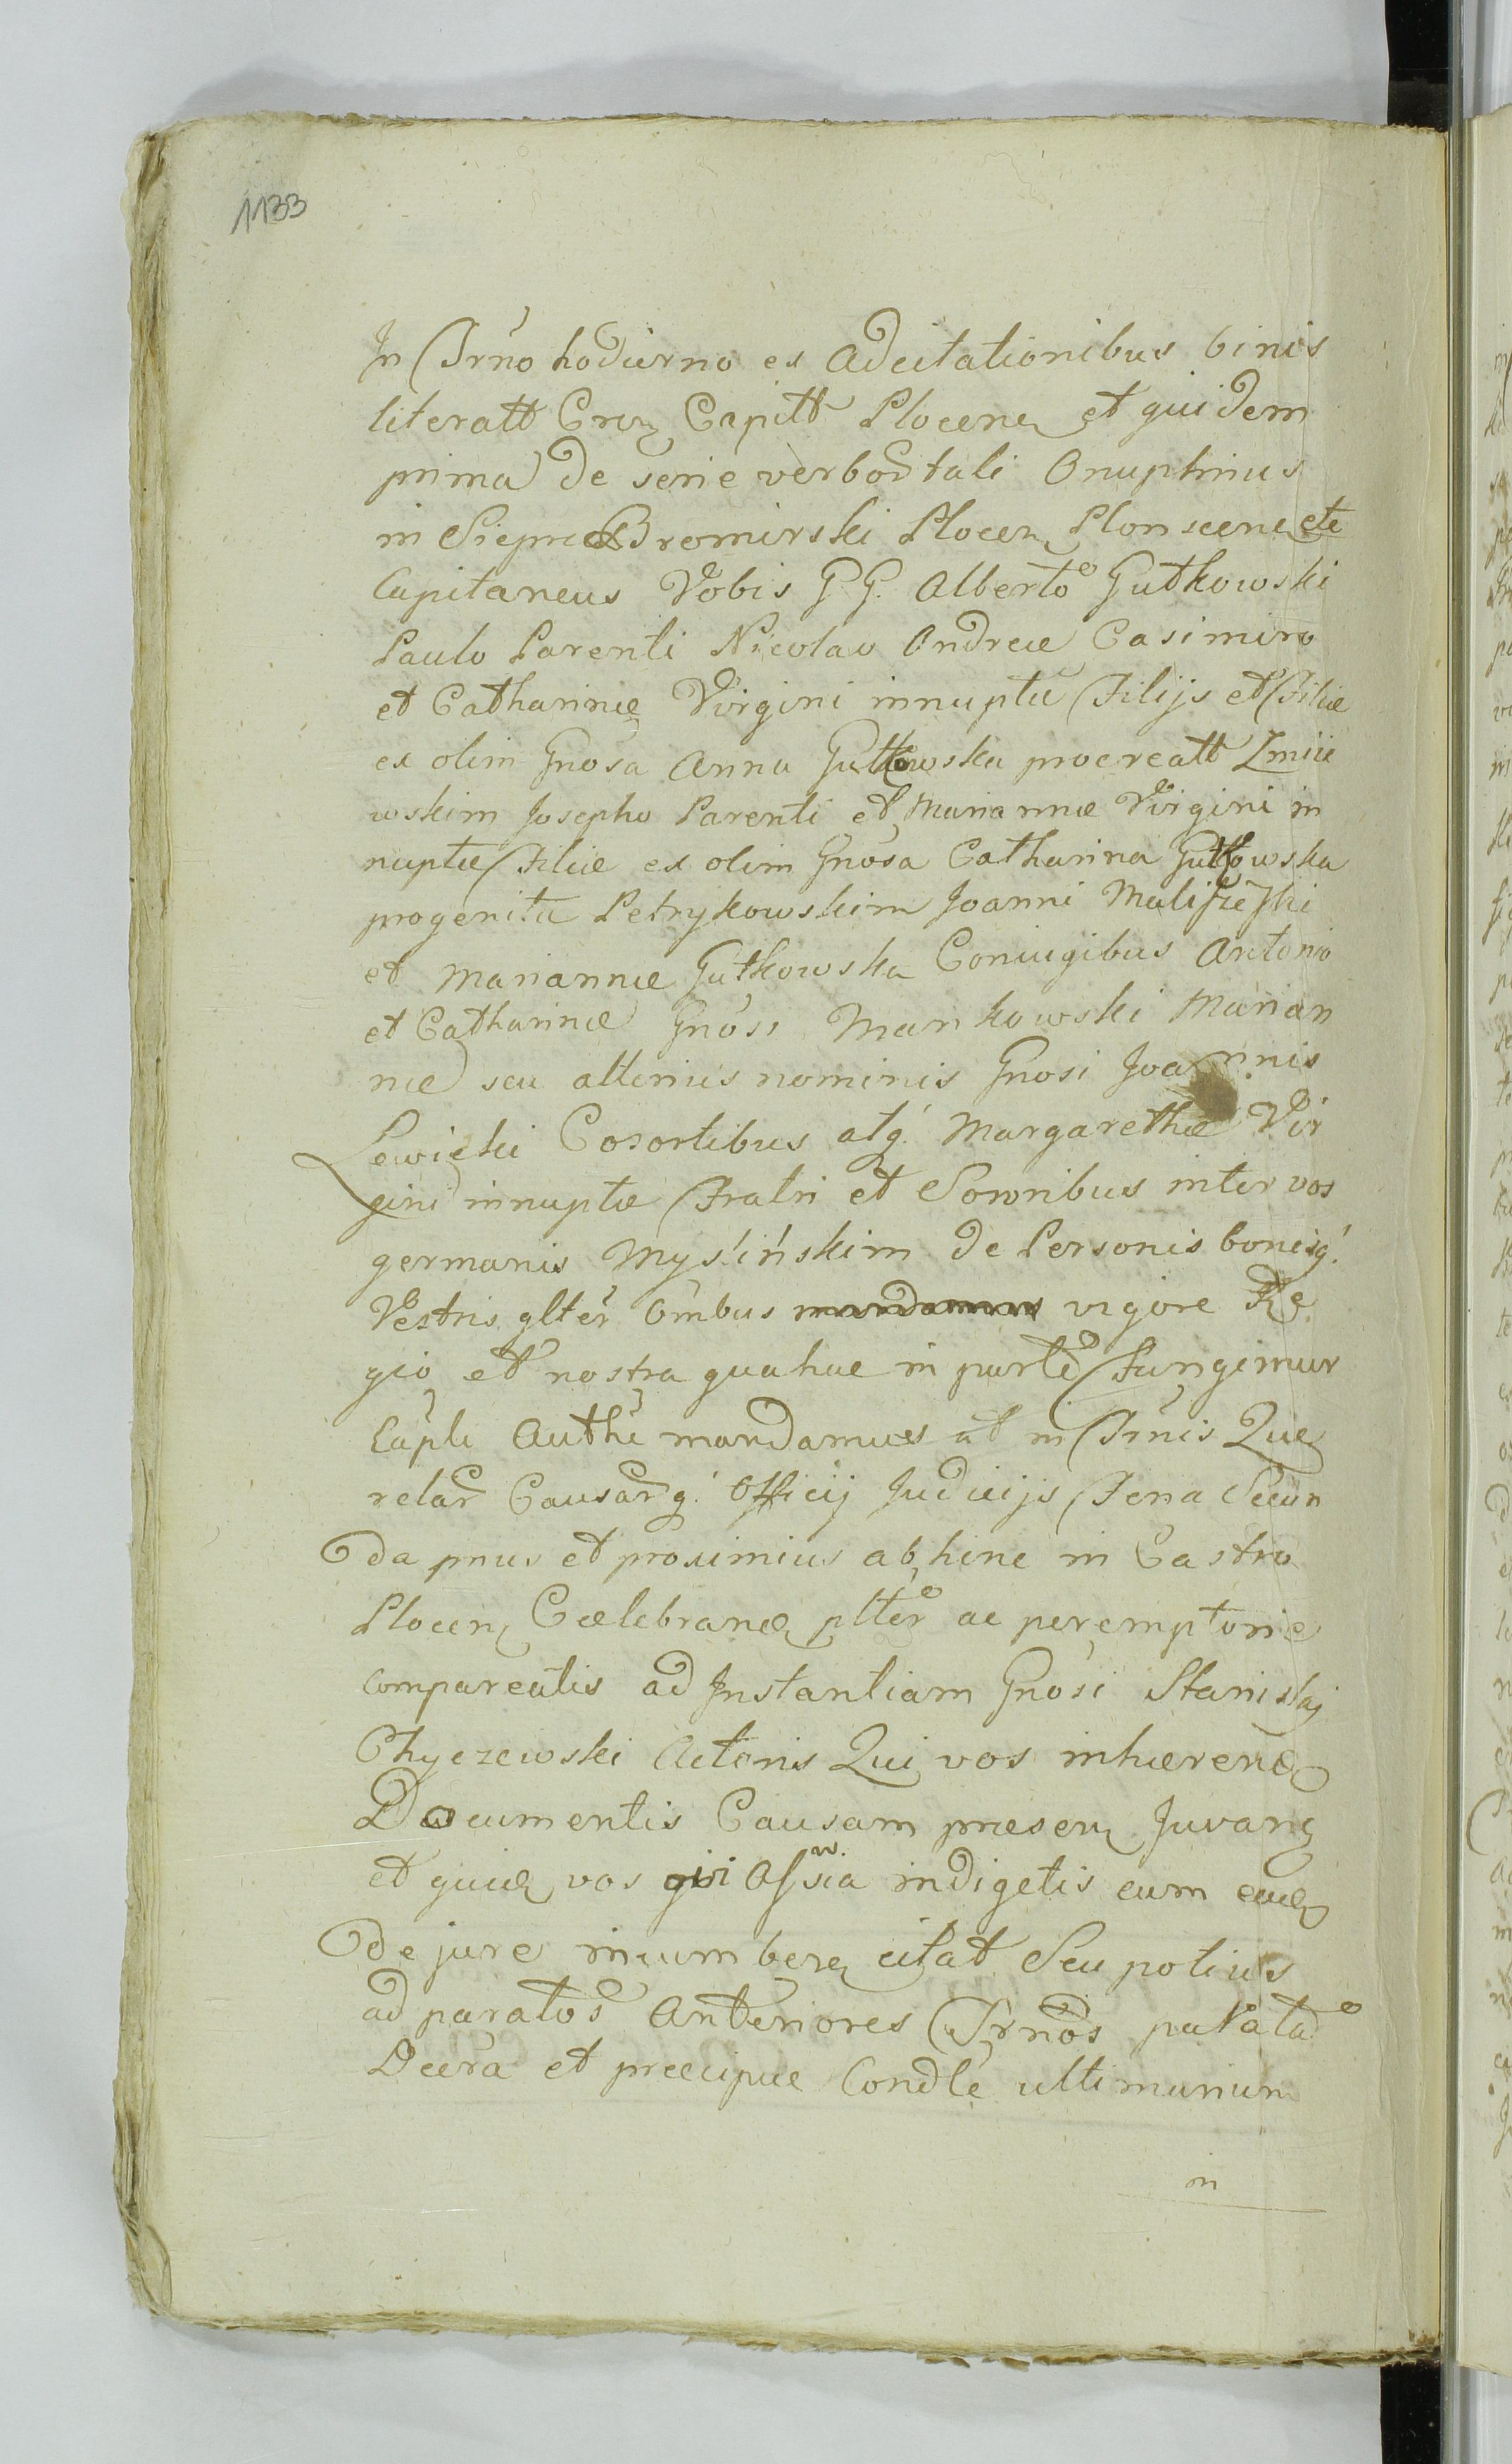 1133
In Trno hodierno ex Adcitationibus binis
literatt Cren Capitt Plocen et quidem
prima de serie verbor tali Onuphrius
in Sieprc Bromirski Plocen Plonscen etc
Capitaneus Vobis G.G. Alberto Gutkowski
Paulo Parenti Nicolao Andreæ Casimiro
et Catharinæ Virgini innuptæ Filijs et Filiæ
ex olim Gnosa Anna Gutkowska procreatt Zmiie
wskim Josepho Parenti et Mariannæ Virgini in
nuptæ Filiæ ex olim Gnosa Catharina Gutkowska
progenita Petrykowskim Joanni Maliszeski
et Mariannæ Gutkowska Coniugibus Antonio
et Catharinæ Gnosi Mankowski Marian
næ seu alterius nominis Gnosi Joannis
Lewicki Cosortibus atq Margarethæ Vir
gini innuptæ Fratri et Sororibus inter vos
germanis Myślińskim de Personis bonisq
Vestris glter Ombus mandamus vigore Re
gio et nostra qua hac in parte Fungimur
Capli Authe mandamus ut in Trnis Que
relar Causarq Officij Judicijs Feria Secun
da prius et proximius abhinc in Castro
Plocen Cælebrand plter ac peremptorie
compareatis ad Instantiam Gnosi Stanislaj
Chyczewski Actoris Qui vos inhæren
Documentis Causam præsen Juvan
et vos indigetis cum
de jure incumbere citat Seu potius
ad paratos Anteriores Trnos parata
Decra et præcipue Condle ultimarium
in